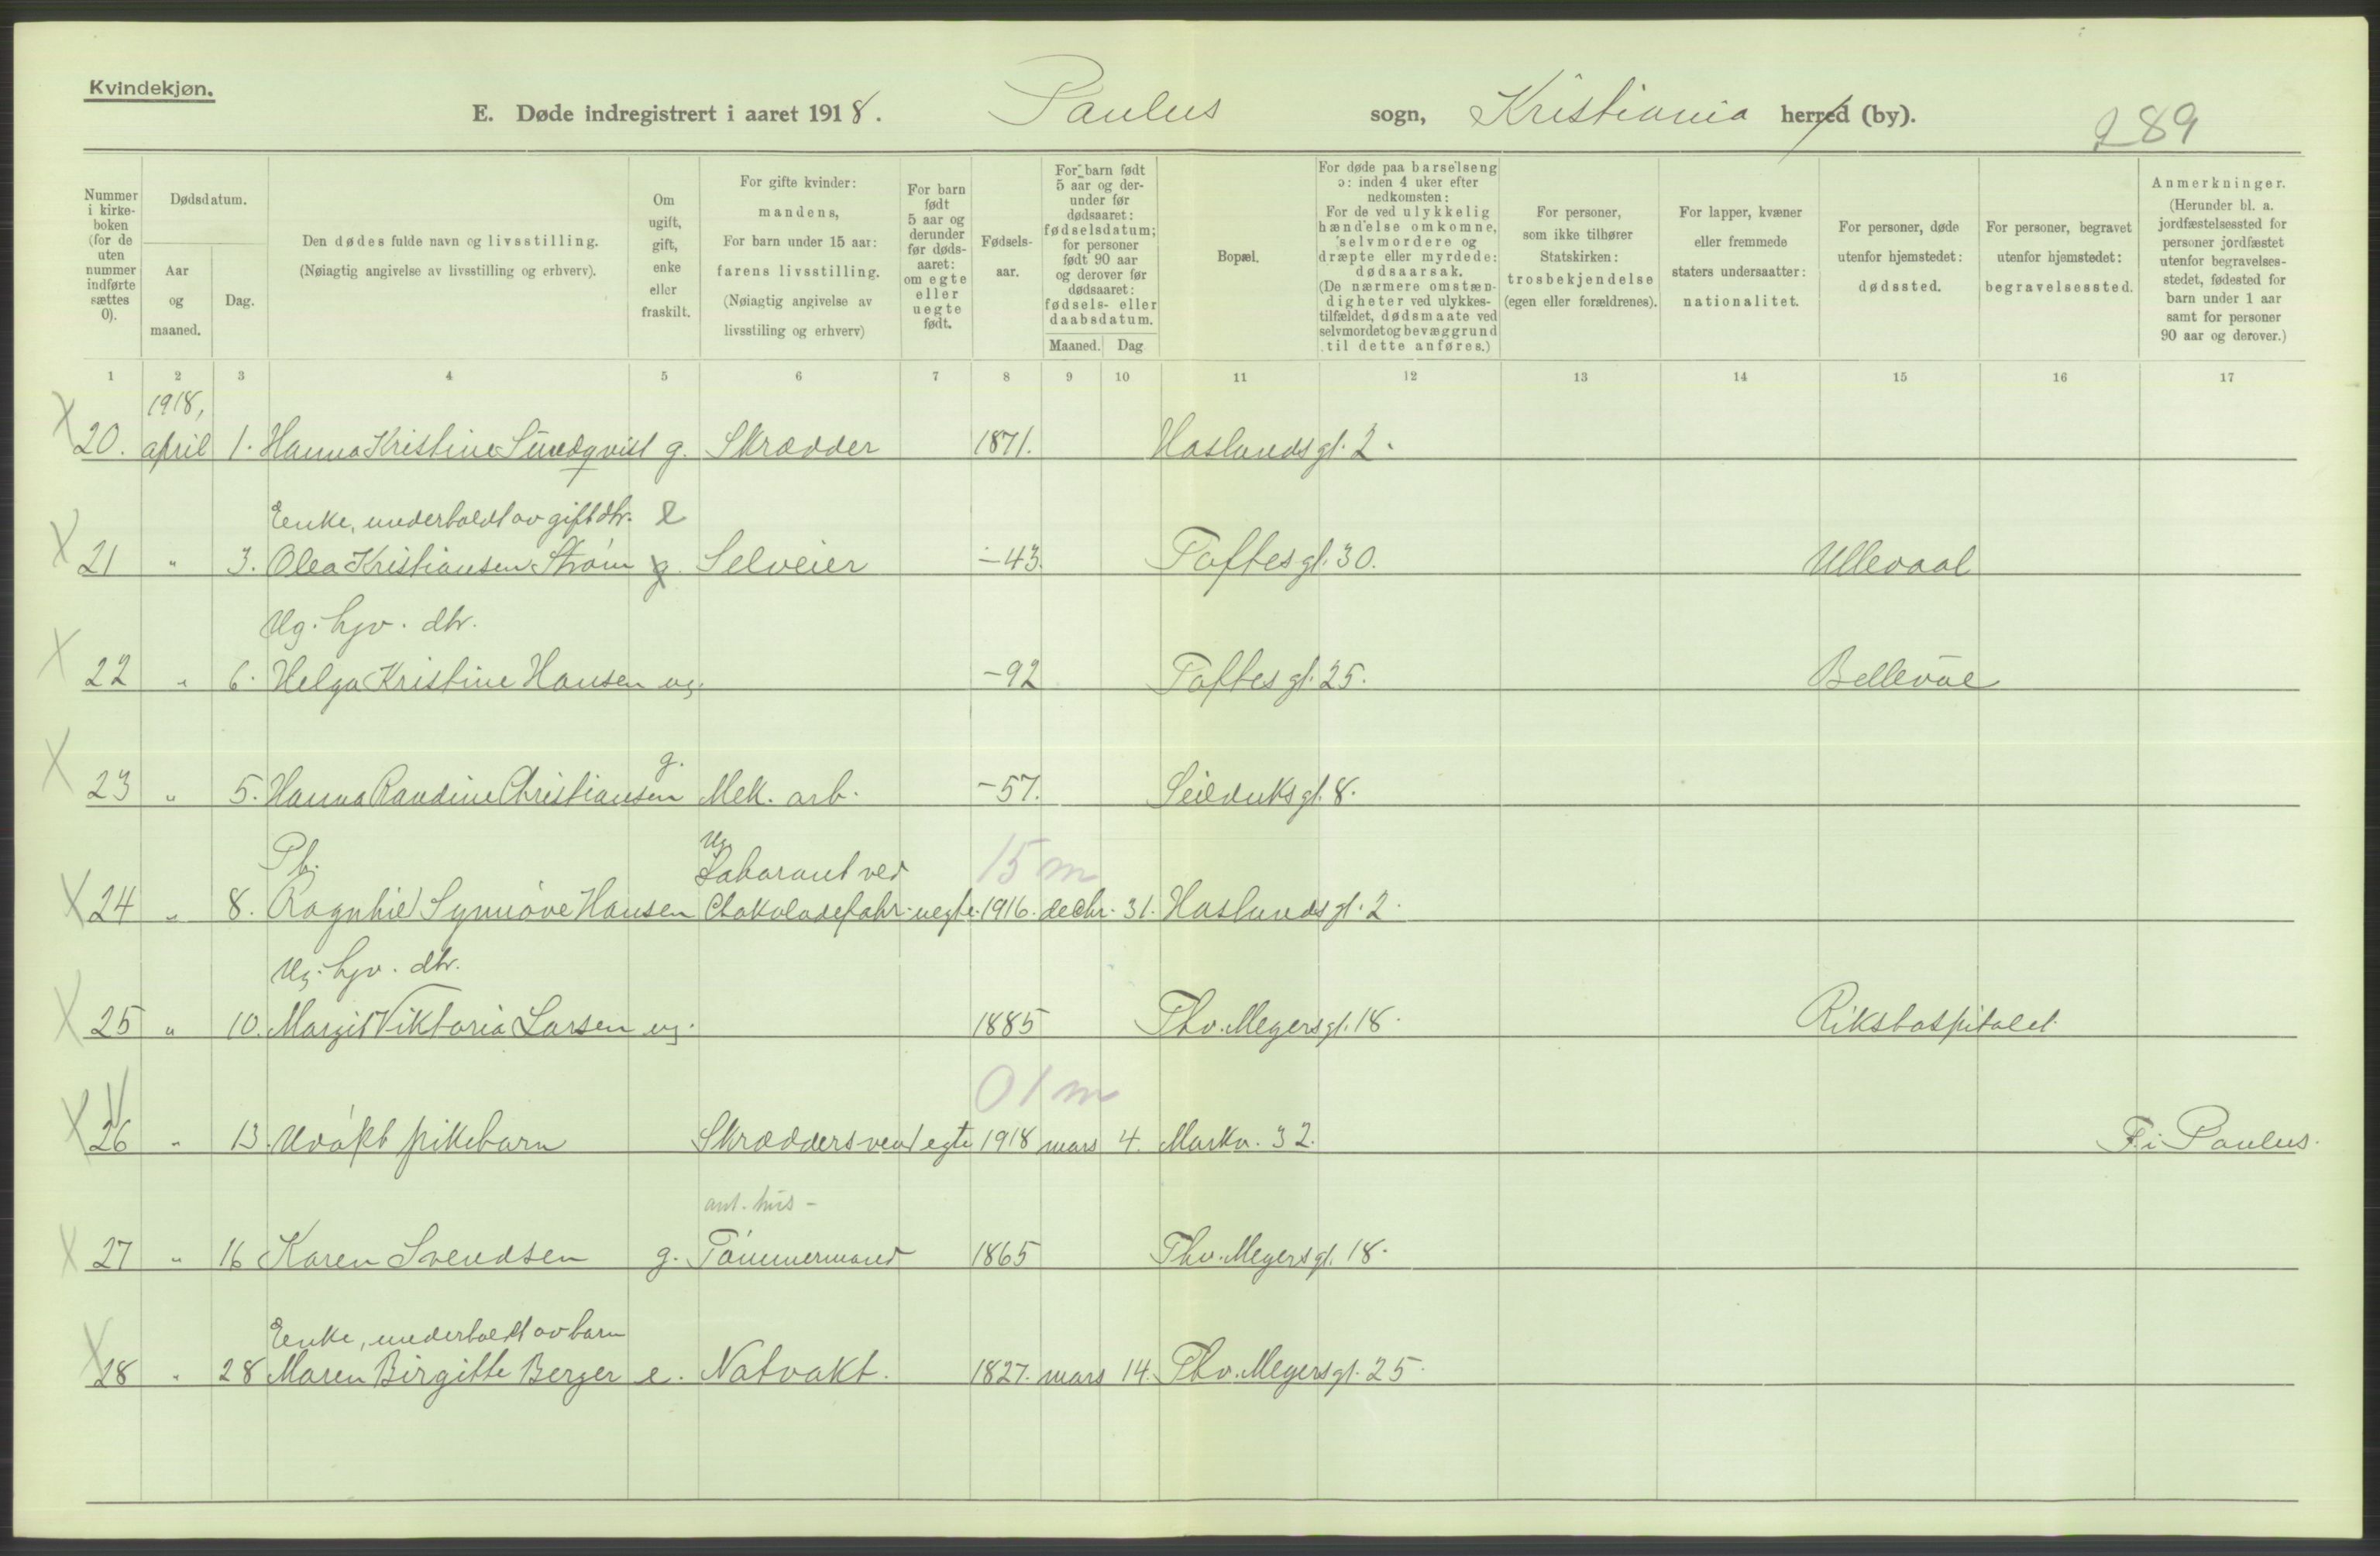 Kvindekjøn.
E. Døde indregistrert i aaret 1918. Paulus sogn, Kristiania herred (by). 289
Nummer i kirkeboken (for de uten nummer indførte sættes 0).
Dødsdatum.
Aar og maaned.
Dag.
Den dødes fulde navn og livsstilling. (Nøiagtig angivelse av livsstilling og erhverv).
Om ugift, gift, enke eller fraskilt.
For gifte kvinder: mandens, For barn under 15 aar: farens livsstilling. (Nøiagtig angivelse av livsstiling og erhverv)
For barn født 5 aar og derunder før dødsaaret: om egte eller uegte født.
Fødselsaar.
For barn født 5 aar og derunder før dødsaaret: fødselsdatum; for personer født 90 aar og derover før dødsaaret: fødsels- eller daabsdatum.
Maaned. Dag
Bopæl.
For døde paa barselseng ɔ: inden 4 uker efter nedkomsten: For de ved ulykkelig hændelse omkomne, selvmordere og dræpte eller myrdede: dødsaarsak. (De nærmere omstændigheter ved ulykkestilfældet, dødsmaate ved selvmordet og bevæggrund til dette anføres.)
For personer, som ikke tilhører Statskirken: trosbekjendelse (egen eller forældrenes).
For lapper, kvæner eller fremmede staters undersaatter: nationalitet.
For personer, døde utenfor hjemstedet: dødssted.
For personer, begravet utenfor hjemstedet: begravelsessted.
Anmerkninger. (Herunder bl. a. jordfæstelsessted for personer jordfæstet utenfor begravelsesstedet, fødested for barn under 1 aar samt for personer 90 aar og derover.)
1 2 3 4 5 6 7 8 9 10 11 12 13 14 15 16 17
1918,
X 20. april 1. Hanna Kristine Sundqvist g. Skrædder 1871. Haslunds gt. 2.
Enke, underholdt av gift dtr. e
X 21 " 3. Olea Kristiansen Strøm g. Selveier -43. Toftes gt. 30. Ullevaal
Ug. hjv. dtr.
X 22 " 6. Helga Kristine Hansen ug. -92 Toftes gt. 25. Bellevue
g.
X 23 " 5. Hanna Randine Christiansen Mek. arb. -57. Seilduks gt. 8.
Pb. Ug Laborant ved 15 m
X 24 " 8. Ragnhild Synnøve Hansen Chokoladefabr. uegte. 1916. decbr. 31. Haslunds gt. 2.
Ug. hjv. dtr.
X 25 " 10. Margit Viktoria Larsen ug. 1885 Thv. Meyers gt. 18. Rikshospitalet.
01 m
X 26 " 13. Udøpt pikebarn Skræddersvend egte 1918 mars 4. Markv. 32. F. i Paulus.
ant. hus-
X 27 " 16 Karen Svendsen g. Tømmermand 1865 Thv. Meyers gt. 18.
Enke, underholdt av barn
X 28 " 28 Maren Birgitte Berger e. Natvakt. 1827. mars 14. Thv. Meyers gt. 25.